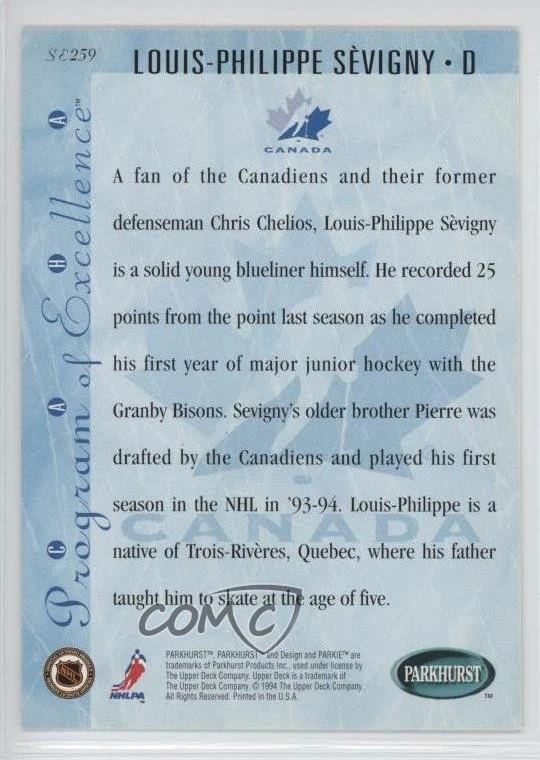 SE259
LOUIS-PHILIPPE SÈVIGNY • D
CANADA
A fan of the Canadiens and their former
defenseman Chris Chelios, Louis-Philippe Sèvigny
is a solid young blueliner himself. He recorded 25
points from the point last season as he completed
his first year of major junior hockey with the
Granby Bisons. Sevigny's older brother Pierre was
drafted by the Canadiens and played his first
season in the NHL in '93-94. Louis-Philippe is a
CANADA
native of Trois-Rivères, Quebec, where his father
taught him to skate at the age of five.
C A H A
Program of Excellence™
COMC
NHL
NHLPA™
PARKHURST™, PARKHURST™ and Design and PARKIE™ are
trademarks of Parkhurst Products Inc., used under license by
The Upper Deck Company. Upper Deck is a trademark of
The Upper Deck Company. © 1994 The Upper Deck Company.
All Rights Reserved. Printed in the U.S.A.
PARKHURST
™